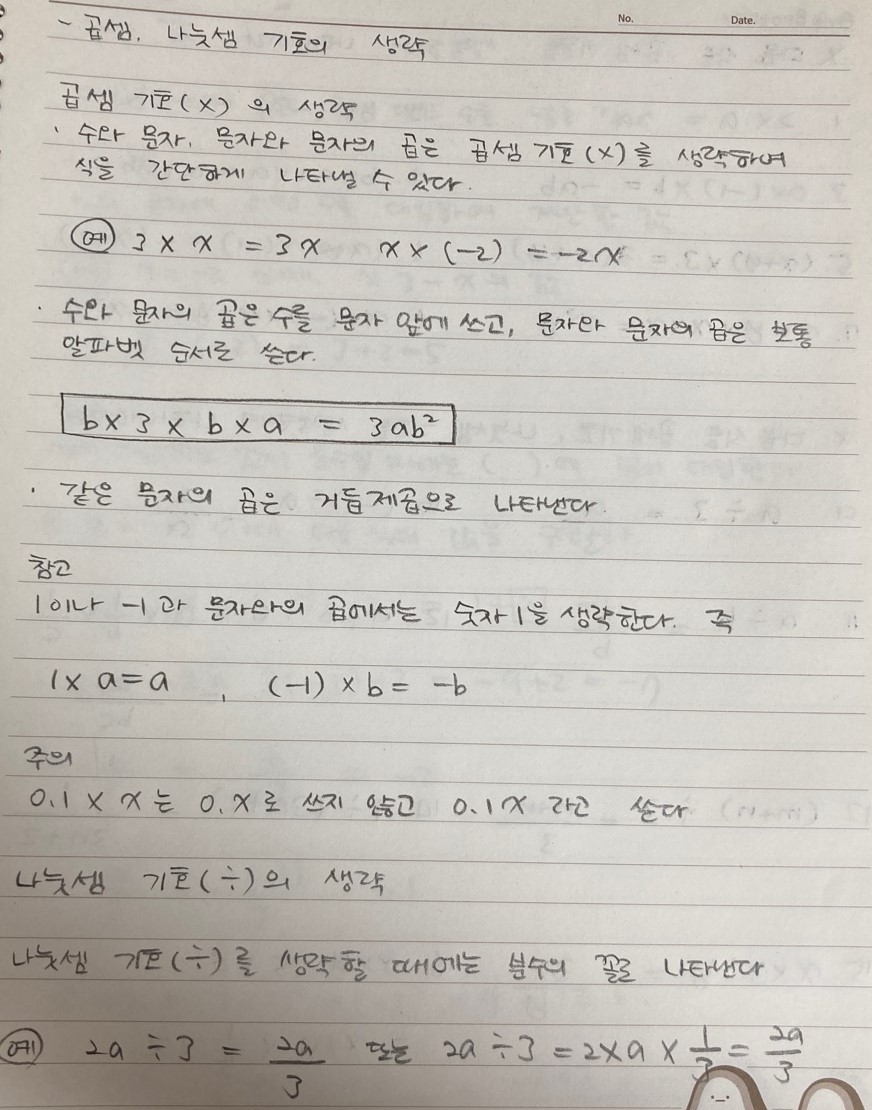 No. Date.
- 곱셈, 나눗셈 기호의 생략
곱셈 기호(×)의 생략
· 수와 문자, 문자와 문자의 곱은 곱셈 기호(×)를 생략하여
식을 간단하게 나타낼 수 있다.
예 3 × x = 3x x × (-2) = -2x
· 수와 문자의 곱은 수를 문자 앞에 쓰고, 문자와 문자의 곱은 보통
알파벳 순서로 쓴다.
b × 3 × b × a = 3ab²
· 같은 문자의 곱은 거듭제곱으로 나타낸다.
참고
1이나 -1과 문자와의 곱에서는 숫자 1을 생략한다. 즉
1 × a = a , (-1) × b = -b
주의
0.1 × x는 0.x로 쓰지 않고 0.1x 라고 쓴다
나눗셈 기호(÷)의 생략
나눗셈 기호(÷)를 생략할 때에는 분수의 꼴로 나타낸다
예 2a ÷ 3 = 2a/3 또는 2a ÷ 3 = 2 × a × 1/3 = 2a/3